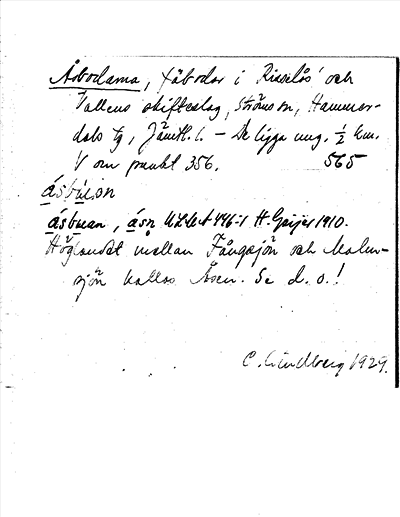 Åsbodarna, fäbodar i Risselås och
Vallens skifteslag, Ströms sn, Hammer-
dals tg, Jämtl. l. – De ligga ung. ½ km.
V om punkt 356. 565
åsbúan
åsbuan, åsn ULMA 446:1 H. Geijer 1910.
Höglandet mellan Fångsjön och Malm-
sjön kallas Åsen. Se d. o.!
C. Lindberg 1929.